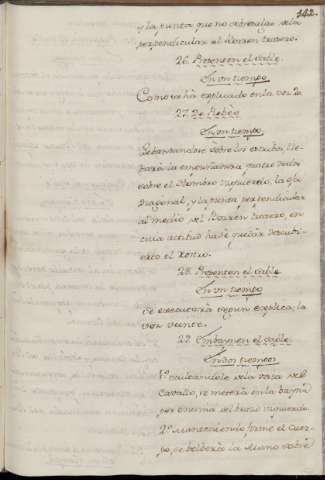 142.
y la punta que no sobresalga de la
perpendicular al Borren trasero.
26. Presenten el sable
En un tiempo
Como se há explicado en la voz 20
27. De Rebes
En un tiempo
Lebantandose sobre los estribos, lle-
bará la empuñadura quatro dedos
sobre el Hombro izquierdo, la oja
diagonal, y la punta perpendicular
al medio del Borren trasero, en
cuia actitud ha de quedar descubi-
erto el rostro.
28. Presenten el sable
En un tiempo
Se executará segun explica, la
voz veinte.
29. Embaynen el sable
En dos tiempos
1º de la vaza del
Cavallo, se meterá en la bayna
por encima del brazo izquierdo.
2º Manteniendo firme el cuer-
po, se bolberá la Mano sobre